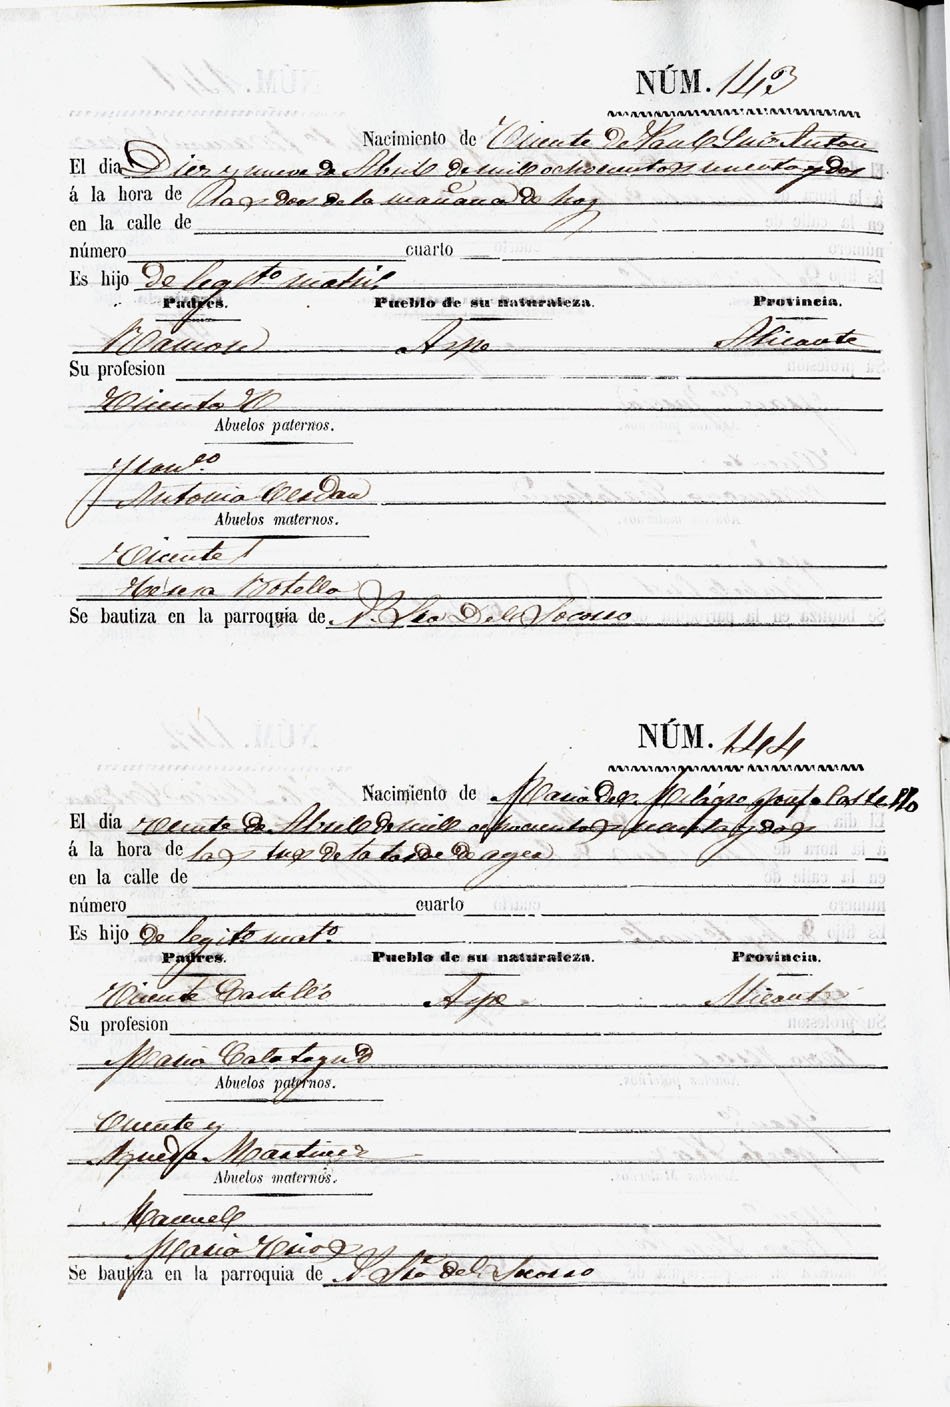 NÚM. 143
Nacimiento de Vicente de Paul Luis Anton
El dia Diez y nueve de Abril de mil ochocientos cincuenta y dos
á la hora de las dos de la mañana de hoy
en la calle de
número cuarto
Es hijo de legto matrio
Padres. Pueblo de su naturaleza. Provincia.
Ramon Aspe Alicante
Su profesion
Vicenta
Abuelos paternos.
Antonia Cerdan
Abuelos maternos.
Vicente
Teresa Botella
Se bautiza en la parroquia de N. Sra del Socorro
NÚM. 144
Nacimiento de Maria del Milagro Josefa Castello
El dia veinte de Abril de mil ochocientos cincuenta y dos
á la hora de las tres de la tarde de ayer
en la calle de
número cuarto
Es hijo de legito mato
Padres. Pueblo de su naturaleza. Provincia.
Vicente Castelló Aspe Alicante
Su profesion
Maria Calatayud
Abuelos paternos.
Vicente y
Martinez
Abuelos maternos.
Manuel
Maria
Se bautiza en la parroquia de N. Sra del Socorro